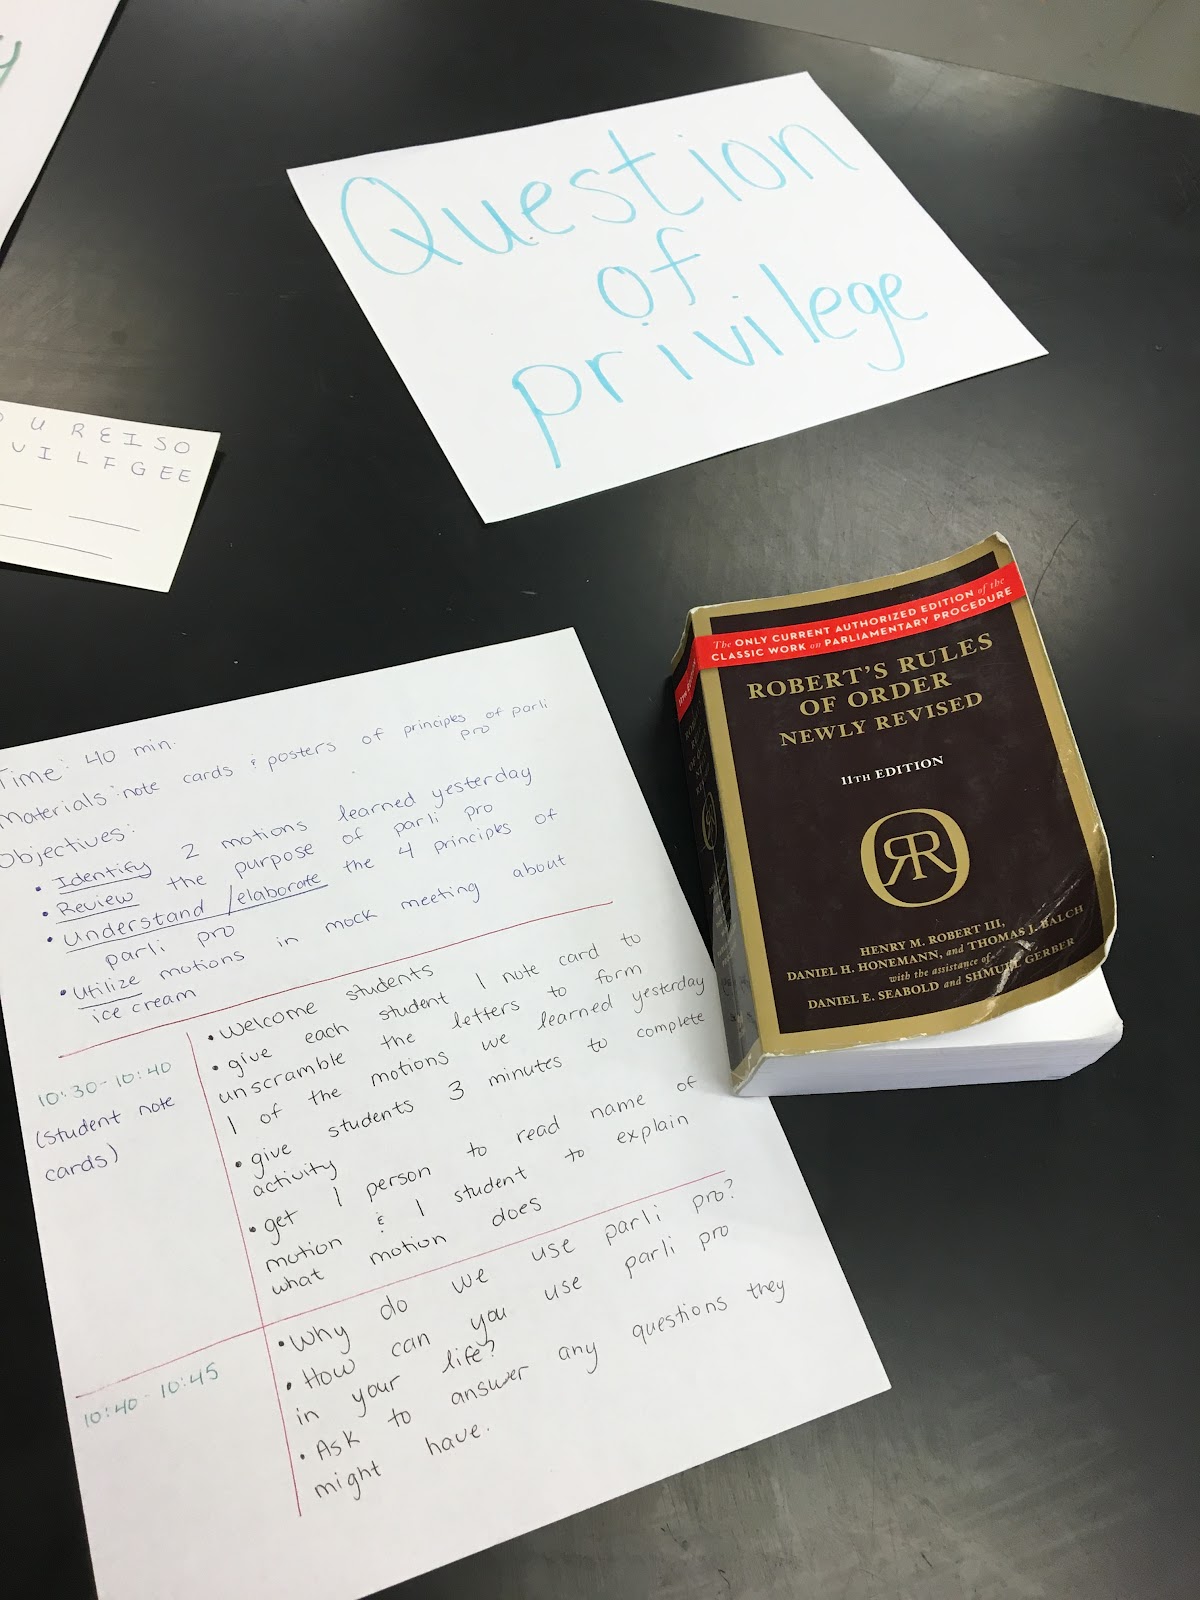 Question
of
privilege
U R E I S O
V I L F G E E
Time: 40 min.
Materials: note cards & posters of principles of parli
pro
Objectives:
• Identify 2 motions learned yesterday
• Review the purpose of parli pro
• Understand/elaborate the 4 principles of
parli pro
• utilize motions in mock meeting about
ice cream
10:30-10:40
(student note
cards)
• Welcome students
• give each student 1 note card to
unscramble the letters to form
1 of the motions we learned yesterday
• give students 3 minutes to complete
activity
• get 1 person to read name of
motion & 1 student to explain
what motion does
10:40-10:45
• Why do we use parli pro?
• How can you use parli pro
in your life?
• Ask to answer any questions they
might have.
The ONLY CURRENT AUTHORIZED EDITION of the
CLASSIC WORK on PARLIAMENTARY PROCEDURE
ROBERT'S RULES
OF ORDER
NEWLY REVISED
11TH EDITION
HENRY M. ROBERT III,
DANIEL H. HONEMANN, and THOMAS J. BALCH
with the assistance of
DANIEL E. SEABOLD and SHMUEL GERBER